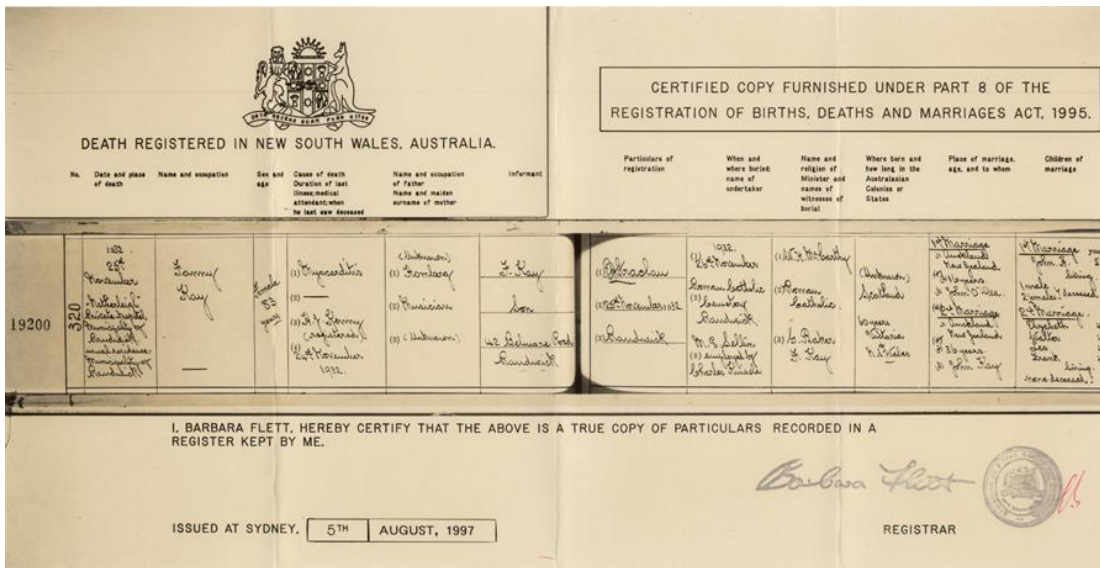 DEATH REGISTERED IN NEW SOUTH WALES, AUSTRALIA.
CERTIFIED COPY FURNISHED UNDER PART 8 OF THE
REGISTRATION OF BIRTHS, DEATHS AND MARRIAGES ACT, 1995.
No.
Date and place
of death
Name and occupation
Sex and
age
Cause of death
Duration of last
illness; medical
attendant; when
he last saw deceased
Name and occupation
of father
Name and maiden
surname of mother
Informant
Particulars of
registration
When and
where buried;
name of
undertaker
Name and
religion of
Minister and
names of
witnesses of
burial
Where born and
how long in the
Australasian
Colonies or
States
Place of marriage,
age, and to whom
Children of
marriage
19200
320
1932
25th
November
Private Hospital
Municipality of
Randwick
usual residence
Municipality of
Randwick
Fanny
Kay
Female
83
years
(1) Myocarditis
(2)
(3)
(registered)
(4)
24th November
1932.
(Unknown)
(1)
(2) Musician
(3) (Unknown)
F. Kay
Son
42 Belmore Road
Randwick
(1)
(2) 25th November 1932
(3) Randwick
1932.
(1) 26th November
Roman Catholic
(2) Cemetery
Randwick
(3) employed by
Charles Kinsela
(1) W. McCarthy
(2) Roman
Catholic.
(3)
F. Kay
(Unknown)
Scotland
60 years
Victoria
N.S.Wales
1st Marriage
(1) Auckland
New Zealand
years
(3) John O'Dea.
2nd Marriage
(1) Auckland
New Zealand
(2) 36 years.
(3) John Kay
1st Marriage
John
living
1 male
2nd Marriage.
Elizabeth
Walter
Les
Frank
living.
none deceased.
I, BARBARA FLETT, HEREBY CERTIFY THAT THE ABOVE IS A TRUE COPY OF PARTICULARS RECORDED IN A
REGISTER KEPT BY ME.
Barbara Flett
ISSUED AT SYDNEY, 5TH AUGUST, 1997
REGISTRAR